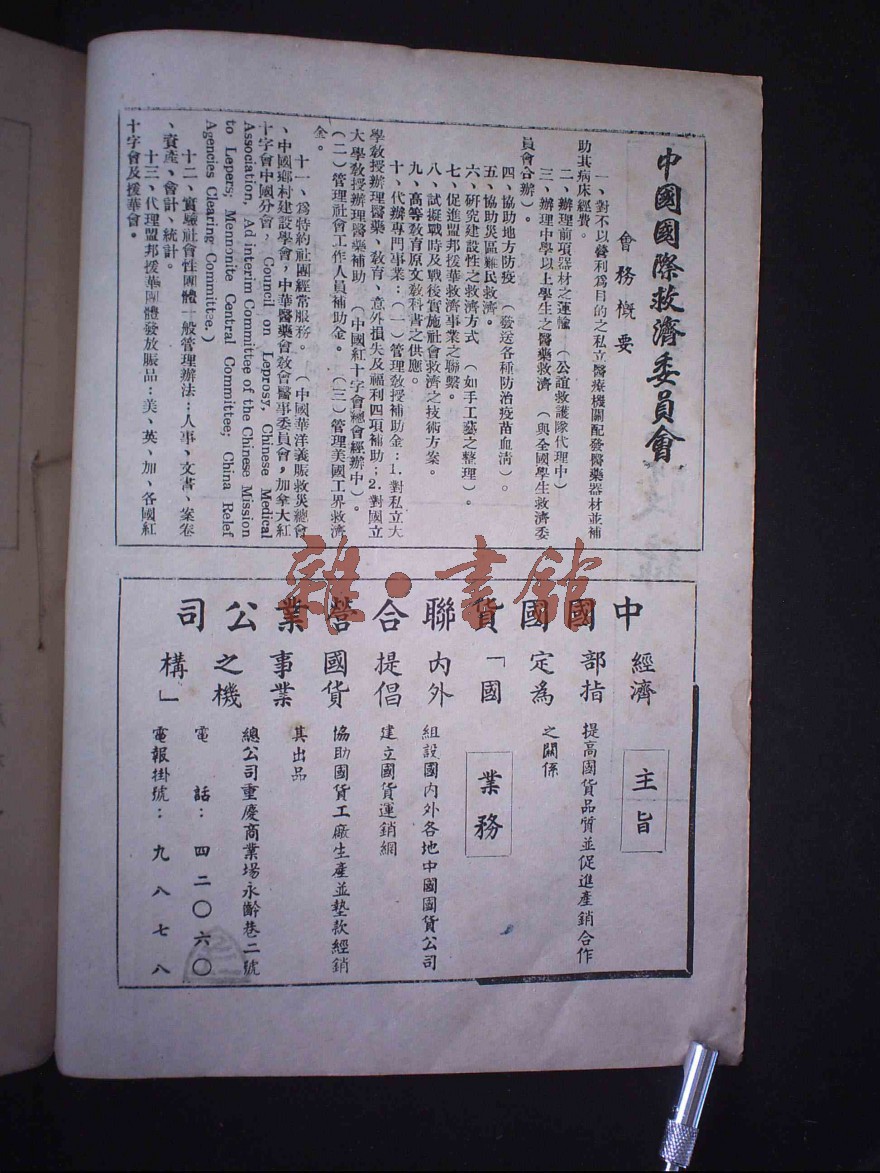 中國國際救濟委員會
會務概要
一、對不以營利爲目的之私立醫療機關配發醫藥器材並補
助其病床經費。
二、辦理前項器材之運輸　（公誼救護隊代理中）
三、辦理中學以上學生之醫藥救濟　（與全國學生救濟委
員會合辦）。
四、協助地方防疫　（發送各種防治疫苗血清）。
五、協助災區難民救濟。
六、研究建設性之救濟方式　（如手工藝之整理）。
七、促進盟邦援華救濟事業之聯繫。
八、試擬戰時及戰後實施社會救濟之技術方案。
九、高等教育原文教科書之供應。
十、代辦專門事業：（一）管理教授補助金：1.對私立大
學教授辦理醫藥、教育、意外損失及福利四項補助；2.對國立
大學教授辦理醫藥補助　（中國紅十字會總會經辦中）。
（二）管理社會工作人員補助金。　（三）管理美國工界救濟
金。
十一、爲特約社團經常服務。　（中國華洋義賑救災總會
、中國鄉村建設學會，中華醫藥會教會醫事委員會，加拿大紅
十字會中國分會，Council on Leprosy, Chinese Medical
Association, Ad interim Committee of the Chinese Mission
to Lepers; Mennonite Central Committee; China Relef
Agencies Clearing Committee.）
十二、實驗社會性團體一般管理辦法：人事、文書、案卷
、資產、會計、統計。
十三、代理盟邦援華團體發放賑品：美、英、加、各國紅
十字會及援華會。
雜·書館
中國國貨聯合營業公司
經濟部指定為「國內外提倡國貨事業之機構」
主旨
提高國貨品質並促進產銷合作
之關係
業務
組設國內外各地中國國貨公司
建立國貨運銷網
協助國貨工廠生產並墊款經銷
其出品
總公司重慶商業場永齡巷二號
電話：四二〇六〇
電報掛號：九八七八